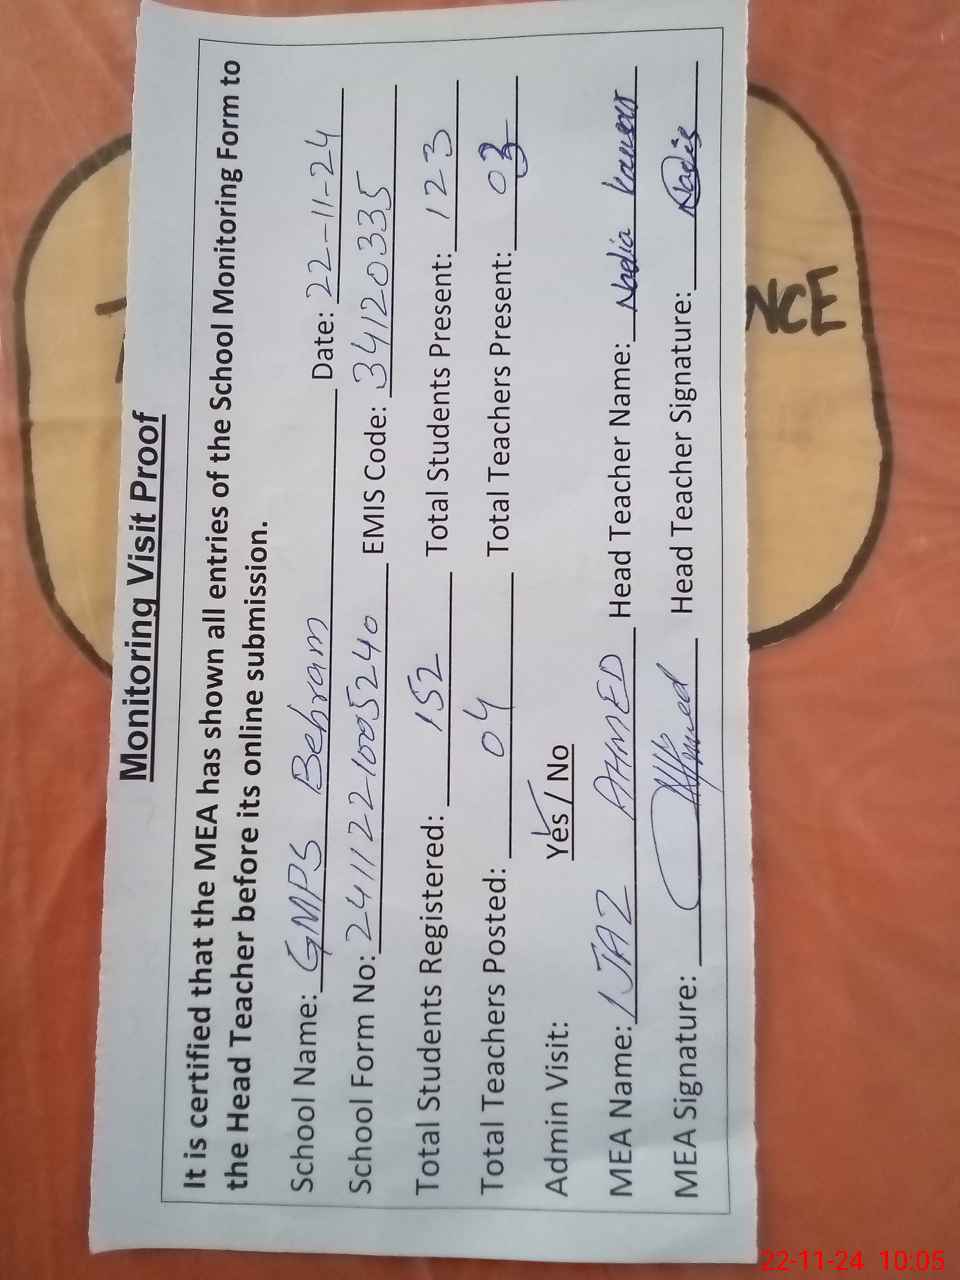 Monitoring Visit Proof
It is certified that the MEA has shown all entries of the School Monitoring Form to
the Head Teacher before its online submission.
School Name: GMPS Behram Date: 22-11-24
School Form No: 24111221005240 EMIS Code: 34120335
Total Students Registered: 152 Total Students Present: 123
Total Teachers Posted: 04 Total Teachers Present: 03
Admin Visit: Yes / No
MEA Name: IJAZ AHMED Head Teacher Name: Nadia
MEA Signature: Head Teacher Signature: Nadia
NCE
22-11-24 10:05